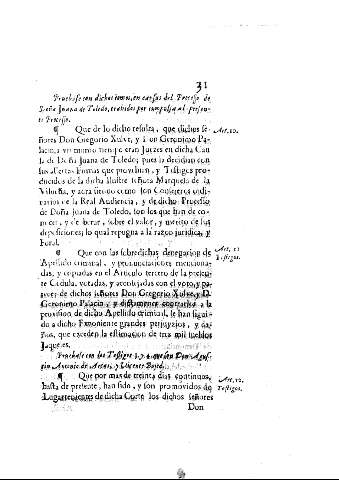 31
Pruebase con dichos tomos, en cas fas del Processo de
Doña Juana de Toledo, traidos por compulsa al presen-
te Processo.
¶ Que de lo dicho resulta, que dichos Se- Art. 10.
ñores Don Gregorio Xulve, y Don Geronimo Pa-
lacio, à un mismo tiempo eran Juezes en dicha Cau-
sa de Doña Juana de Toledo; pues la decidian con
sus assertas Firmas que proveían, y Testigos pro-
ducidos de la dicha Ilustre Señora Marquesa de la
Vilueña, y aora siendo como son Consejeros ordi-
narios de la Real Audiencia, y de dicho Processo
de Doña Juana de Toledo, son los que han de co-
nocer, y deliberar, sobre el valor, y merito de sus
disposiciones; lo qual repugna a la razon juridica, y
Foral.
¶ Que con las sobredichas denegacion de Art. 11
Apellido criminal, y pronunciaciones menciona- Testigos.
das, y copiadas en el Articulo tercero de la presen-
te Cedula, votadas, y aconsejadas con el voto, y pa-
recer de dichos señores Don Gregorio Xulve, y D.
Geronimo Palacio, y distamente contrarias a la
provision de dicho Apellido criminal, se han segui-
do a dicho Exponiente grandes perjuyzios, y da-
ños, que exceden la estimacion de tres mil sueldos
Jaqueses.
Pruebase con los Testigos 3. y 4. que son Don Agus-
tin Antonio de Azcon, y Vicente Bayod.
¶ Que por mas de treinta dias continuos, Art. 12.
hasta de presente, han sido, y son promovidos de Testigos.
Lugartenientes de dicha Corte los dichos señores
Don